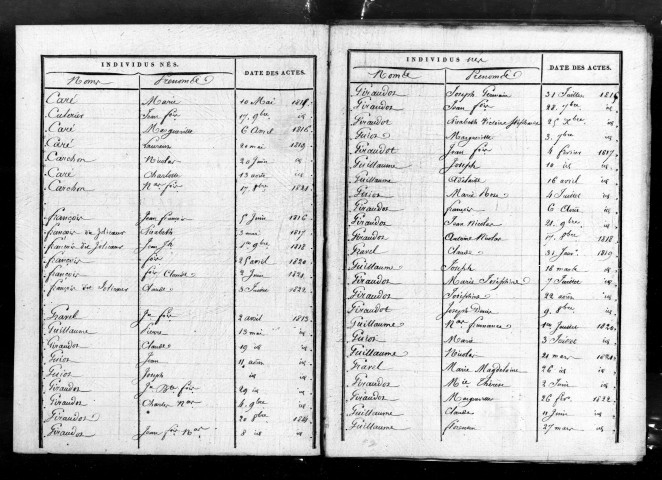 INDIVIDUS NÉS. DATE DES ACTES.
Noms Prénoms
Caré Marie 10 Mai 1814
Cuterier Jean 17 9bre id
Caré Marguerite 6 avril 1816
Caré 20 mai 1819
Carchon Nicolas 20 Juin id
Caré Charlotte 13 août id
Carchon Nas 17 8bre 1821
françois Jean françois 5 Juin 1816
françois dit Joliceur Nicolas 3 mai 1817
françois dit Joliceur Jean Jh 1er 9bre 1818
françois 25 avril 1820
françois Claude 2 Juin 1821
françois dit Joliceur Claude 3 Juillet 1822
Gravel Jn 2 avril 1813
Guillaume Pierre 13 mai id
Giraudot Claude 19 id id
Guiot Jean 11 août id
Guiot Joseph id id
Giraudot Jn Bte 29 id id
Giraudot Charles Nas 4 9bre id
Giraudot 20 8bre 1814
Giraudot Jean Nas 8 id id
INDIVIDUS nés DATE DES ACTES.
Noms Prénoms
Giraudot Joseph Germain 31 Juillet 1815
Giraudot Jean 28 7bre id
Giraudot Elisabeth Victoire Stéphanie 25 Xbre id
Guiot Marguerite 3 9bre id
Giraudot Jean 4 février 1817
Guillaume Joseph 10 id id
Guillaume Adélaïde 16 avril id
Guiot Marie Rose 4 Juillet id
Giraudot françois 6 août id
Giraudot Jean Nicolas 21 9bre id
Giraudot Antoine Nicolas 17 8bre 1818
Gravel Claude 31 Janv 1819
Guillaume Joseph 16 mars id
Giraudot Marie Joséphine 7 Juillet id
Giraudot Joséphine 22 août id
Giraudot Joseph 9 8bre id
Guillaume Nas 1er Juillet 1820
Guiot Marie 3 Juillet id
Guillaume Nicolas 21 mars 1821
Gravel Marie Magdeleine 26 id id
Giraudot Mie Thérèse 2 Juin id
Giraudot Marguerite 26 fer 1822
Guillaume Claude 11 Juin id
Guillaume florence 27 mars id